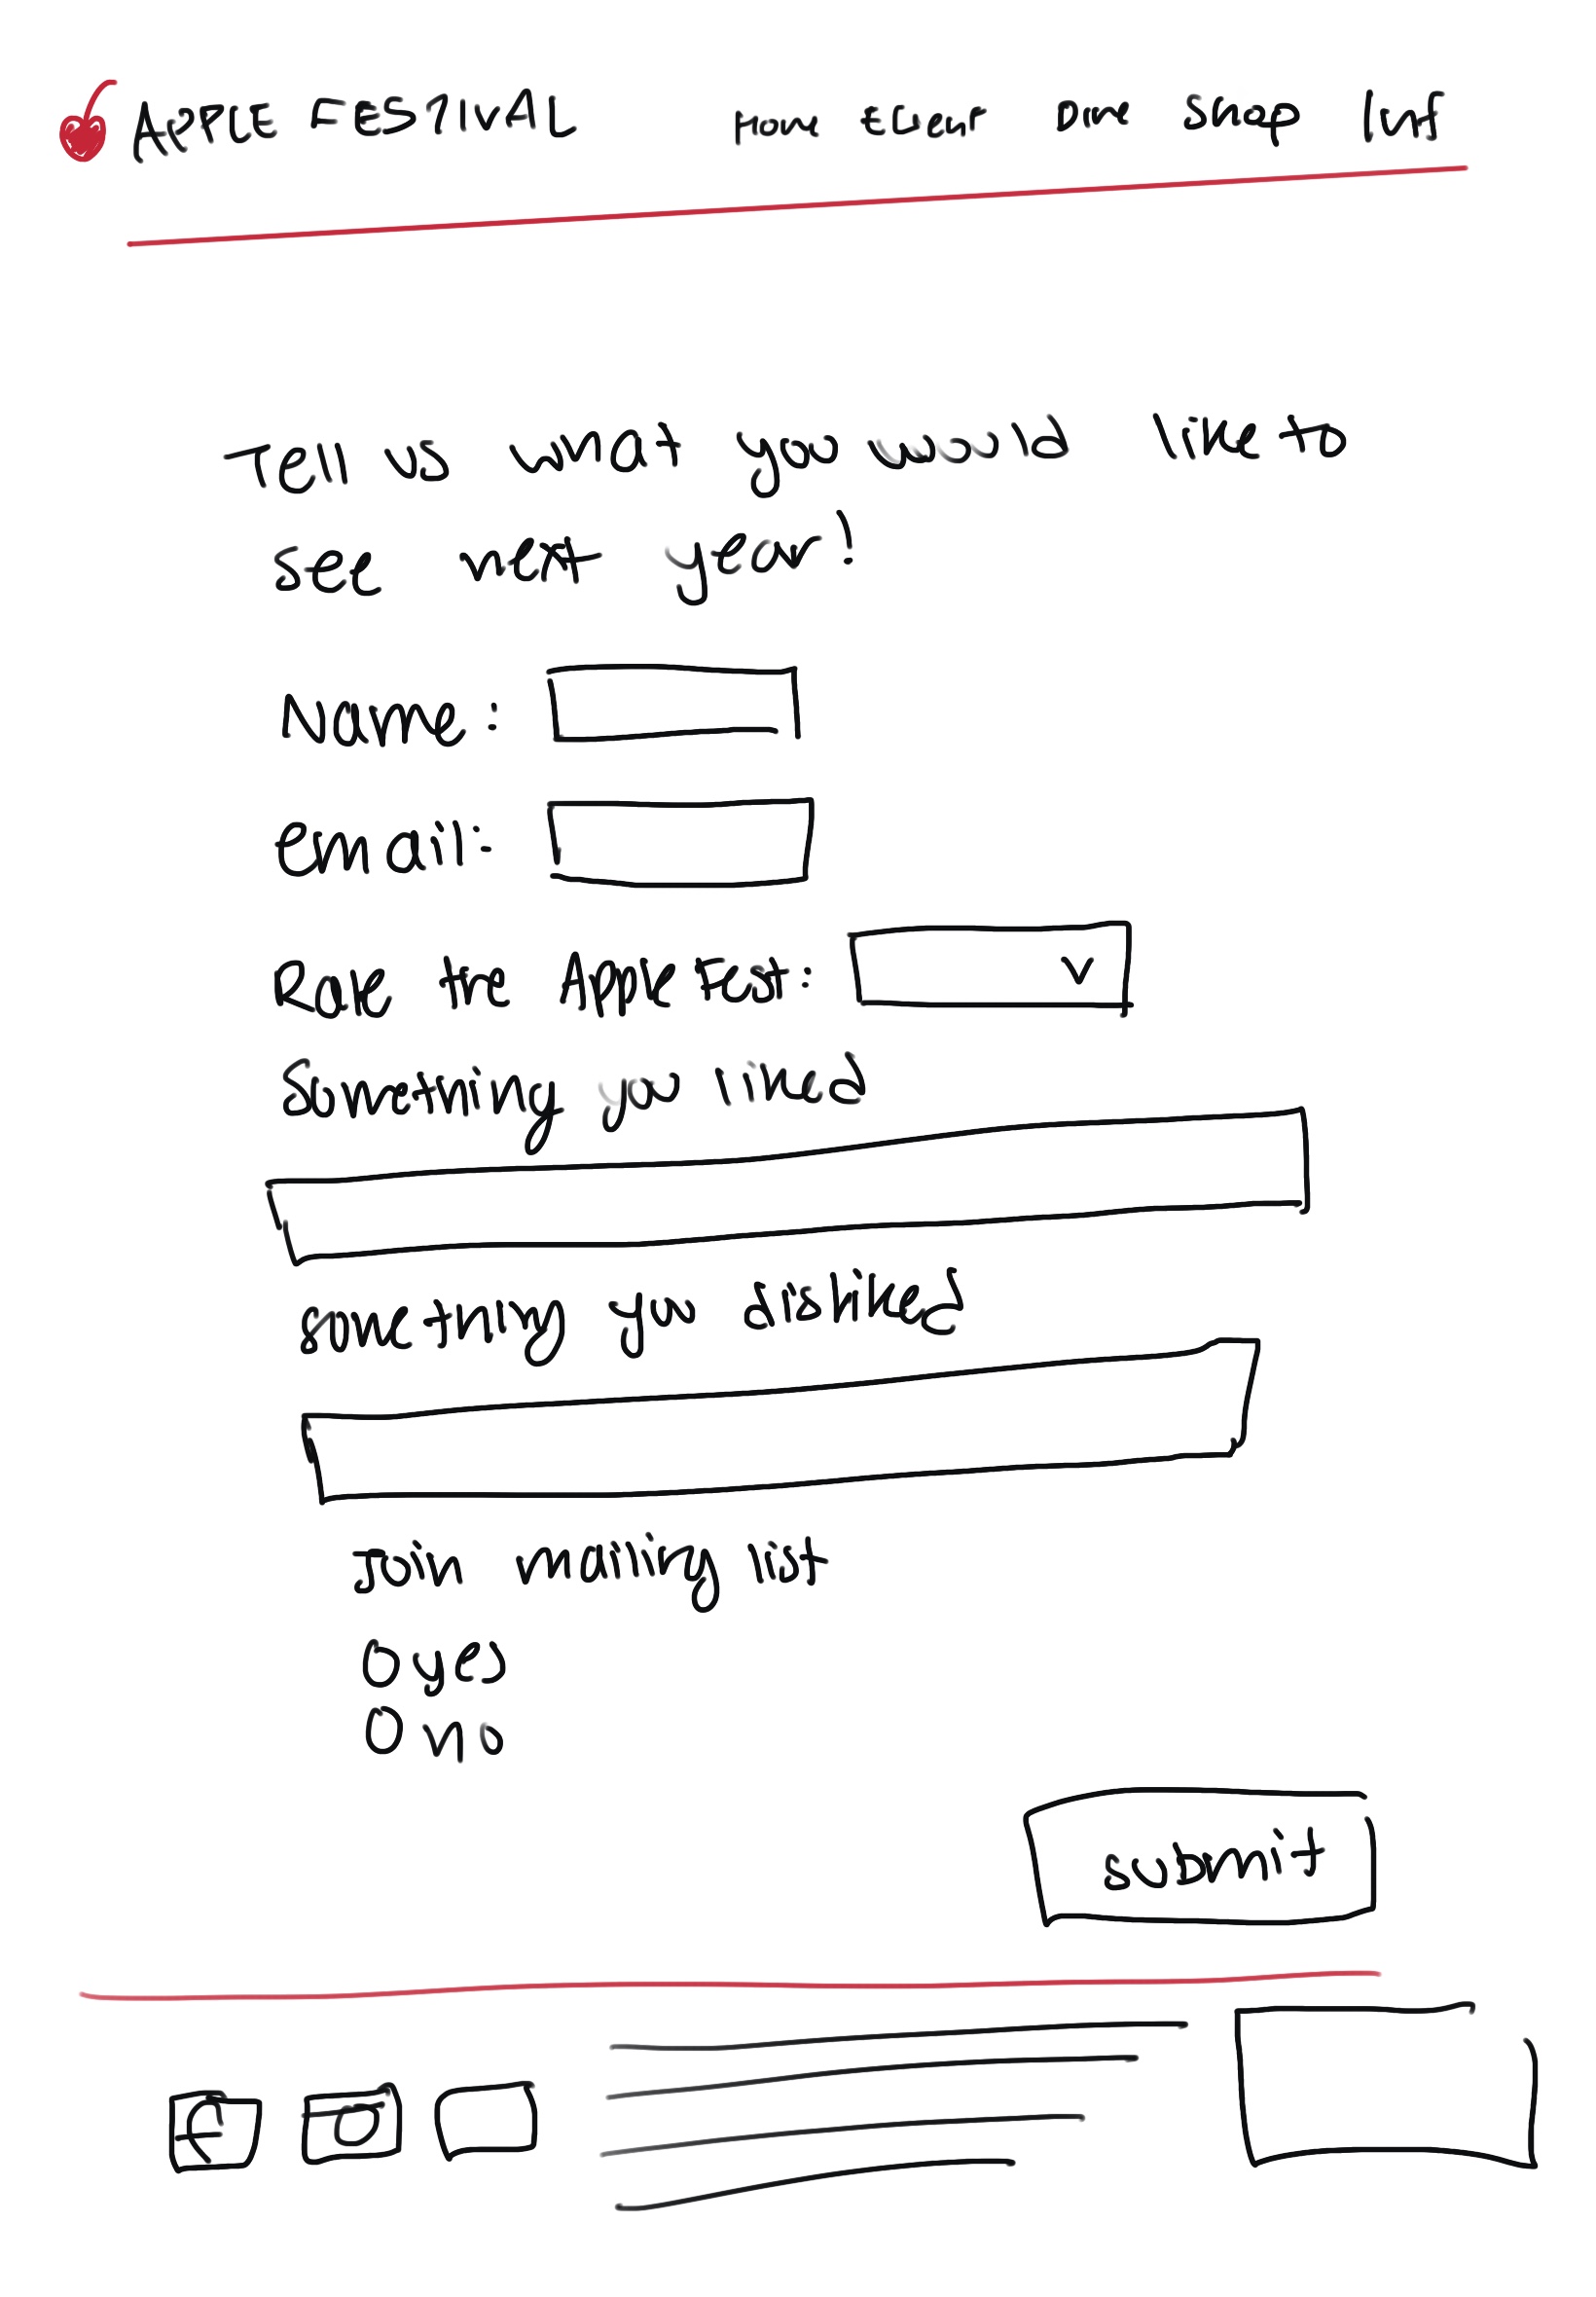 APPLE FESTIVAL
Home Event Dine Shop Inf
Tell us what you would like to
see next year!
Name:
email:
Rate the Apple Fest:
Something you liked
something you disliked
Join mailing list
yes
no
submit
f